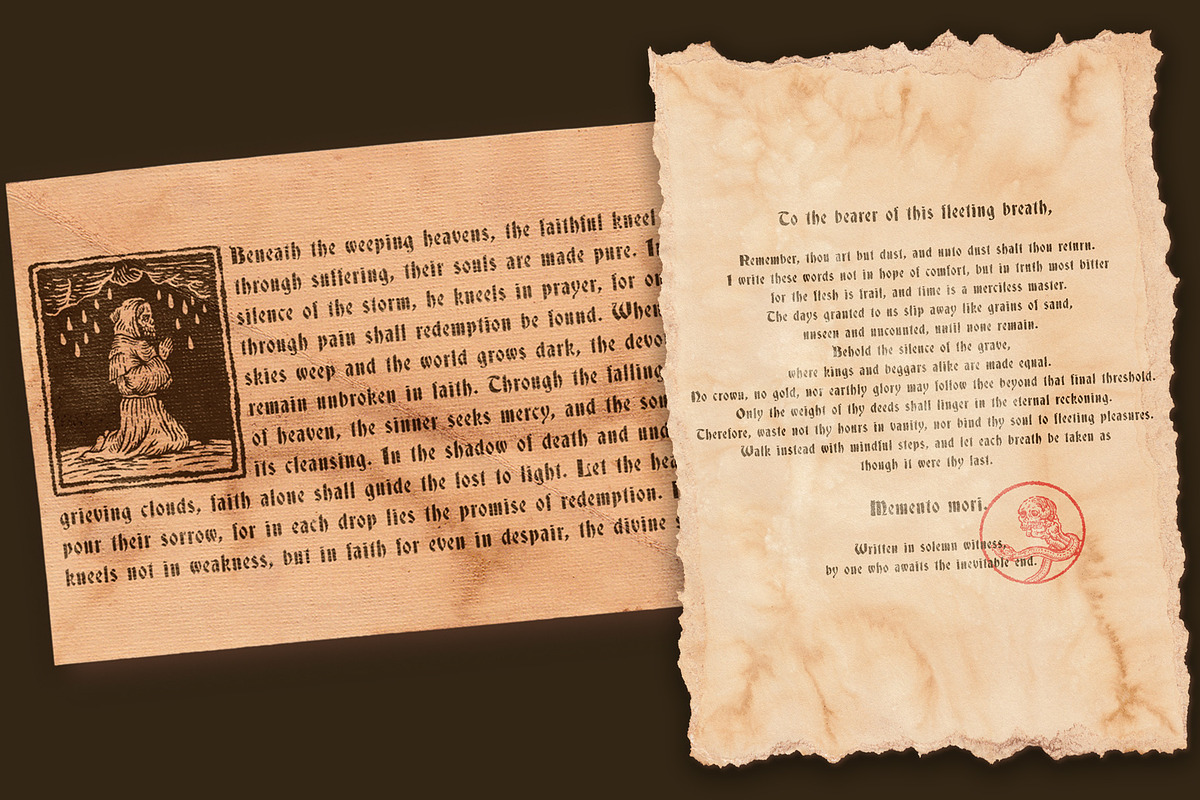 Beneath the weeping heavens, the faithful kneel
through suffering, their souls are made pure. In
silence of the storm, he kneels in prayer, for
through pain shall redemption be found. When
skies weep and the world grows dark, the
remain unbroken in faith. Through the falling
of heaven, the sinner seeks mercy, and the
its cleansing. In the shadow of death and
grieving clouds, faith alone shall guide the lost to light. Let the
pour their sorrow, for in each drop lies the promise of redemption.
kneels not in weakness, but in faith for even in despair, the divine
To the bearer of this fleeting breath,
Remember, thou art but dust, and unto dust shalt thou return.
I write these words not in hope of comfort, but in truth most bitter
for the flesh is frail, and time is a merciless master.
The days granted to us slip away like grains of sand,
unseen and uncounted, until none remain.
Behold the silence of the grave,
where kings and beggars alike are made equal.
No crown, no gold, nor earthly glory may follow thee beyond that final threshold.
Only the weight of thy deeds shall linger in the eternal reckoning.
Therefore, waste not thy hours in vanity, nor bind thy soul to fleeting pleasures.
Walk instead with mindful steps, and let each breath be taken as
though it were thy last.
Memento mori.
Written in solemn witness,
by one who awaits the inevitable end.